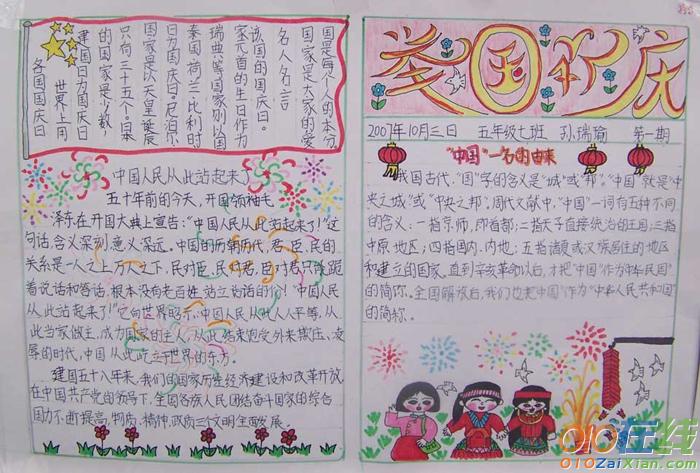 各国国庆日
世界上用
建国日为国庆日
的国家是少数,
只有三十五个。日本
国家是以天皇诞辰
日为国庆日,尼泊尔
泰国、荷兰、比利时
瑞典等国家别以国
家元首的生日作为
该国的国庆日。
名人名言
国家是大家的爱
国是每个人的本分
中国人民从此站起来了
五十年前的今天,开国领袖毛
泽东在开国大典上宣告:“中国人民从此站起来了!”这
句话,含义深刻,意义深远。中国的历朝历代,君、臣、民的
关系是一人之上,万人之下,民对臣,民对君,臣对君,只有跪
着说话和答话,根本没有老百姓站立说话的份!“中国人民
从此站起来了!”它向世界昭示,中国人民从此人人平等,从
此当家做主,成为国家的主人,从此,结束饱受外来欺压、凌
辱的时代,中国从此屹立于世界的东方。
建国五十八年来,我们的国家历生经济建设和改革开放
在中国共产党的领导下,全国各族人民团结奋斗国家的综合
国力不断提高,物质、精神、政质三个文明全面发展。
举国欢庆
2007年10月三日 五年级七班 孙瑞瑜 第一期
“中国”一名的由来
我国古代,“国”字的含义是“城”或“邦”。“中国”就是“中
央之城”或“中央之邦”。周代文献中,“中国”一词有五种不同
的含义:一指京师,即首都;二指天子直接统治的王国;三指
中原地区;四指国内、内地;五指诸夏或汉族居住的地区
和建立的国家。直到辛亥革命以后,才把“中国”作为“中华民国”
的简称。全国解放后,我们也把“中国”作为“中华人民共和国”
的简称。
010在线
010ZaiXian.com